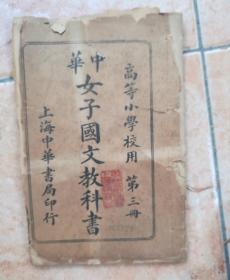 高等小學校用 第三冊
中華
女子國文教科書
上海中華書局印行